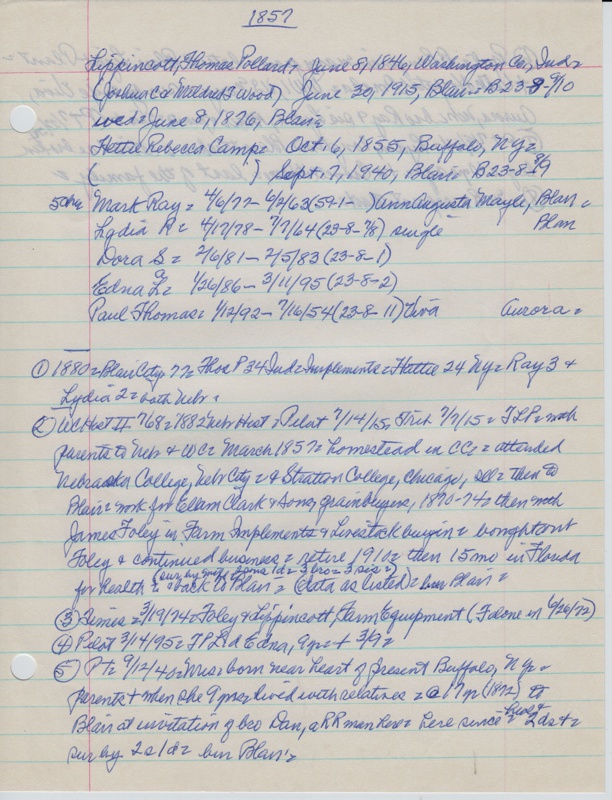 1857
Lippincott, Thomas Pollard = June 8, 1846, Washington Co, Ind =
(Joshua C & Mildred F Wood) June 30, 1915, Blair = B23-8-9/10
wed = June 8, 1876, Blair =
Hettie Rebecca Camp = Oct. 6, 1855, Buffalo, NY =
( ) Sept. 7, 1940, Blair = B23-8-8/9
5chn Mark Ray = 4/6/77 - 6/2/63 (59-1- ) Ann Augusta Mayle, Blair =
Lydia R = 4/17/78 - 7/7/64 (23-8-7/8) single Blair
Dora S = 2/6/81 - 2/5/83 (23-8-1)
Edna L = 1/26/86 - 3/11/95 (23-8-2)
Paul Thomas = 1/12/92 - 7/16/54 (23-8-11) Viva Aurora =
① 1880 = Blair City 77 = Thos P 34 Ind = Implements = Hattie 24 NY = Ray 3 &
Lydia 2 = both Nebr =
② WC Hist II 768 = 1882 Nebr Hist = Pilot 7/14/15, Trib 7/7/15 = TLP = with
parents to Nebr & WC = March 1857 = homestead in CC = attended
Nebraska College, Nebr City = & Stratton College, Chicago, Ill = then to
Blair = work for Elam Clark & Sons, grain buyers, 1870-74 = then with
James Foley in Farm Implements & Livestock buying = bought out
Foley & continued business = retire 1910 = then 15 mo in Florida
sur by wife 2 sons 1d = 3 bro = 3 sis =)
for health = back to Blair = (data as listed) = bur Blair =
③ Times = 3/19/74 = Foley & Lippincott, Farm Equipment (F alone in 6/26/72)
④ Pilot 3/14/95 = TP Ld Edna, 9 yr + 3/9 =
⑤ PT = 9/12/40 = Mrs = born near heart of present Buffalo, NY =
parents + when she 9 yrs = lived with relatives = @ 17 yr (1872) to
Blair at invitation of bro Dan, a RR man here = here since = 2ds + =
sur by 2s 1d = bur Blair =